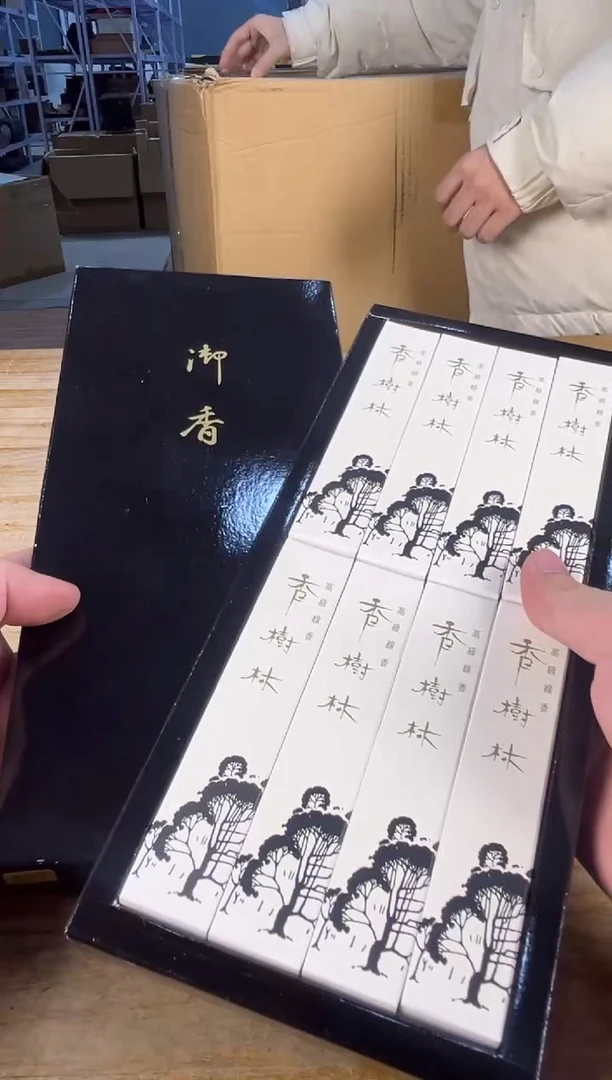 御香
高級線香
香樹林
高級線香
香樹林
高級線香
香樹林
高級線香
香樹林
高級線香
香樹林
高級線香
香樹林
高級線香
香樹林
高級線香
香樹林